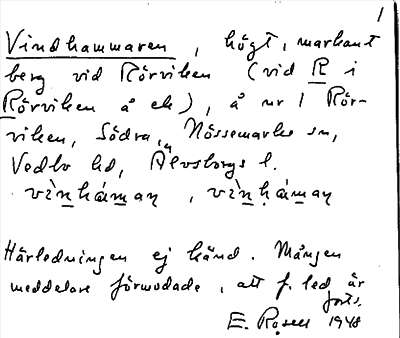 1
Vindhammaren, högt, markant
berg vid Rörviken (vid R i
Rörviken å ek), å nr 1 Rör-
viken, Södra, Nössemarks sn,
Vedbo hd, Älvsborgs l.
vìnhámaṇ, vìnhámaṇ
Härledningen ej känd. Mången
meddelare förmodade, att f. led är
forts.
E. Rosell 1948